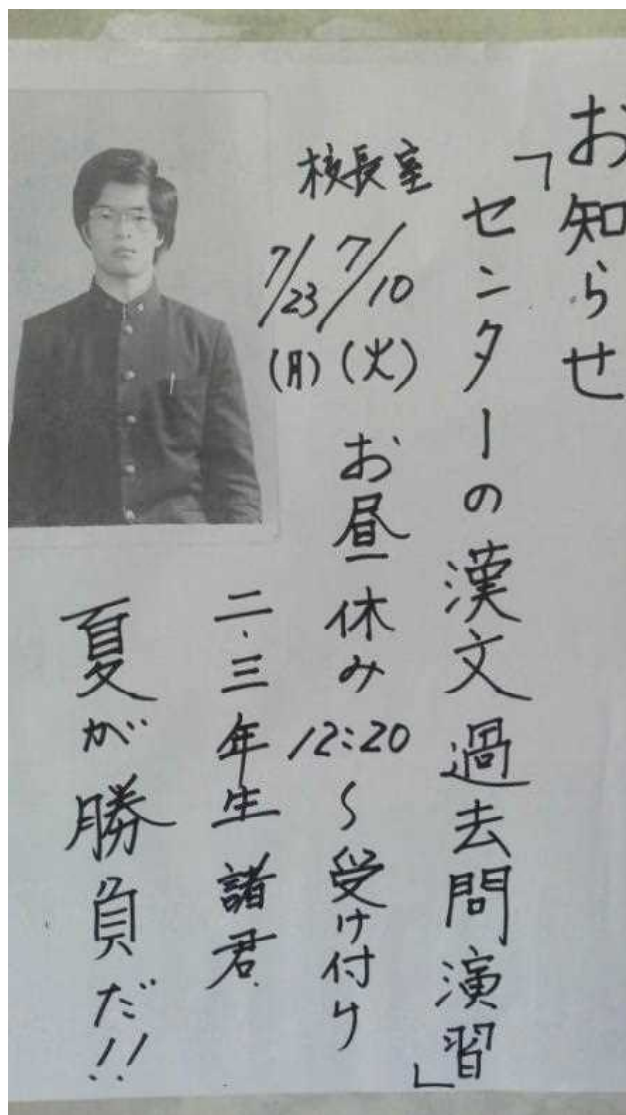 お知らせ
「センターの漢文過去問演習」
校長室
7/10(火)
7/23(月)
お昼休み12:20~受け付け
二、三年生諸君
夏が勝負だ!!